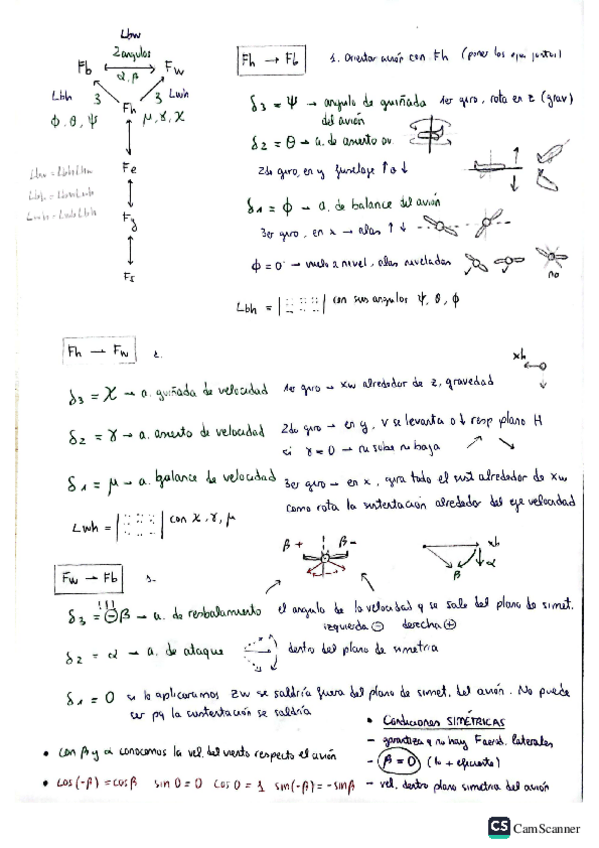 Lbw
2 angulos
Fb Fw
α, β
Lbh 3 3 Lwh
Fh
Φ, θ, Ψ μ, γ, χ
Fe
Fg
FI
Fh → Fb 1. Orientar avión con Fh (poner los ejes juntos)
δ3 = Ψ → angulo de guiñada del avión 1er giro, rota en z (grav)
δ2 = θ → a. de asiento av
2do giro, en y fuselaje ↑ o ↓
δ1 = Φ → a. de balance del avión
3er giro, en x → alas ↑ ↓
Φ = 0 → vuelo a nivel, alas niveladas
no
Lbh = | | con sus angulos Ψ, θ, Φ
Fh → Fw 2.
xh
δ3 = χ → a. guiñada de velocidad 1er giro → xw alrededor de z, gravedad
δ2 = γ → a. asiento de velocidad 2do giro → en y, v se levanta o ↓ resp plano H
si γ = 0 → ni sube ni baja
δ1 = μ → a. balance de velocidad 3er giro → en x, gira todo el sist alrededor de xw
como rota la sustentación alrededor del eje velocidad
Lwh = | | con χ, γ, μ
β + β -
xb
α
β
Fw → Fb 3.
!!!
δ3 = ⊖β → a. de resbalamiento el angulo de la velocidad q se sale del plano de simet.
izquierda ⊖ derecha ⊕
δ2 = α → a. de ataque dentro del plano de simetria
δ1 = 0 si lo aplicaramos zw se saldría fuera del plano de simet. del avión. No puede
ser pq la sustentación se saldría
• Condiciones SIMÉTRICAS
- garantiza q no hay Faerod. laterales
• con β y α conocemos la vel. del viento respecto el avión
- β = 0 (lo + eficiente)
• cos(-β) = cosβ sin 0 = 0 cos 0 = 1 sin(-β) = -sinβ
- vel. dentro plano simetria del avión
CS CamScanner